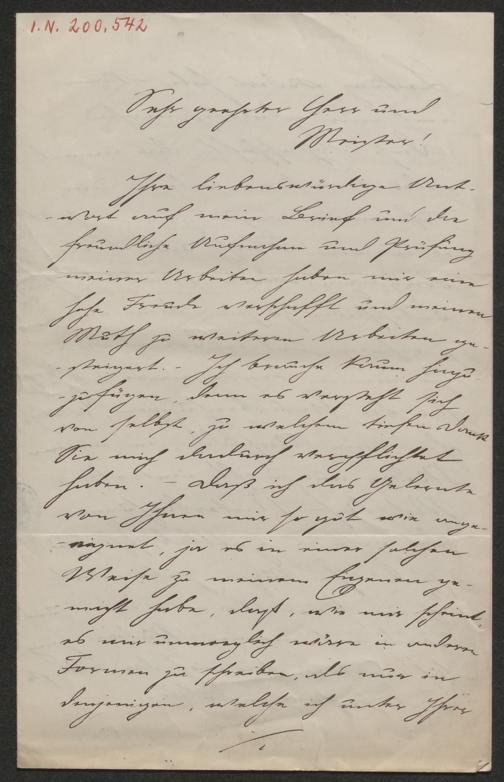 I.N. 200.542
Sehr geehrter Herr und
Meister!
Ihre liebenswürdige Ant-
-wort auf meinen Brief und die
freundliche Aufnahme und Prüfung
meiner Arbeiten haben mir eine
hohe Freude verschafft und meinen
Muth zu weiteren Arbeiten ge-
-steigert. - Ich brauche kaum hinzu-
-zufügen, denn es versteht sich
von selbst, zu welchem tiefen Dank
Sie mich dadurch verpflichtet
haben. - Daß ich das Gelernte
von Ihnen mir so gut wie ange-
-eignet, ja es in einer solchen
Weise zu meinem Eigenen ge-
-macht habe, daß, wie mir scheint,
es mir unmoeglich wäre in anderen
Formen zu schreiben, als nur in
denjenigen, welche ich unter Ihrer